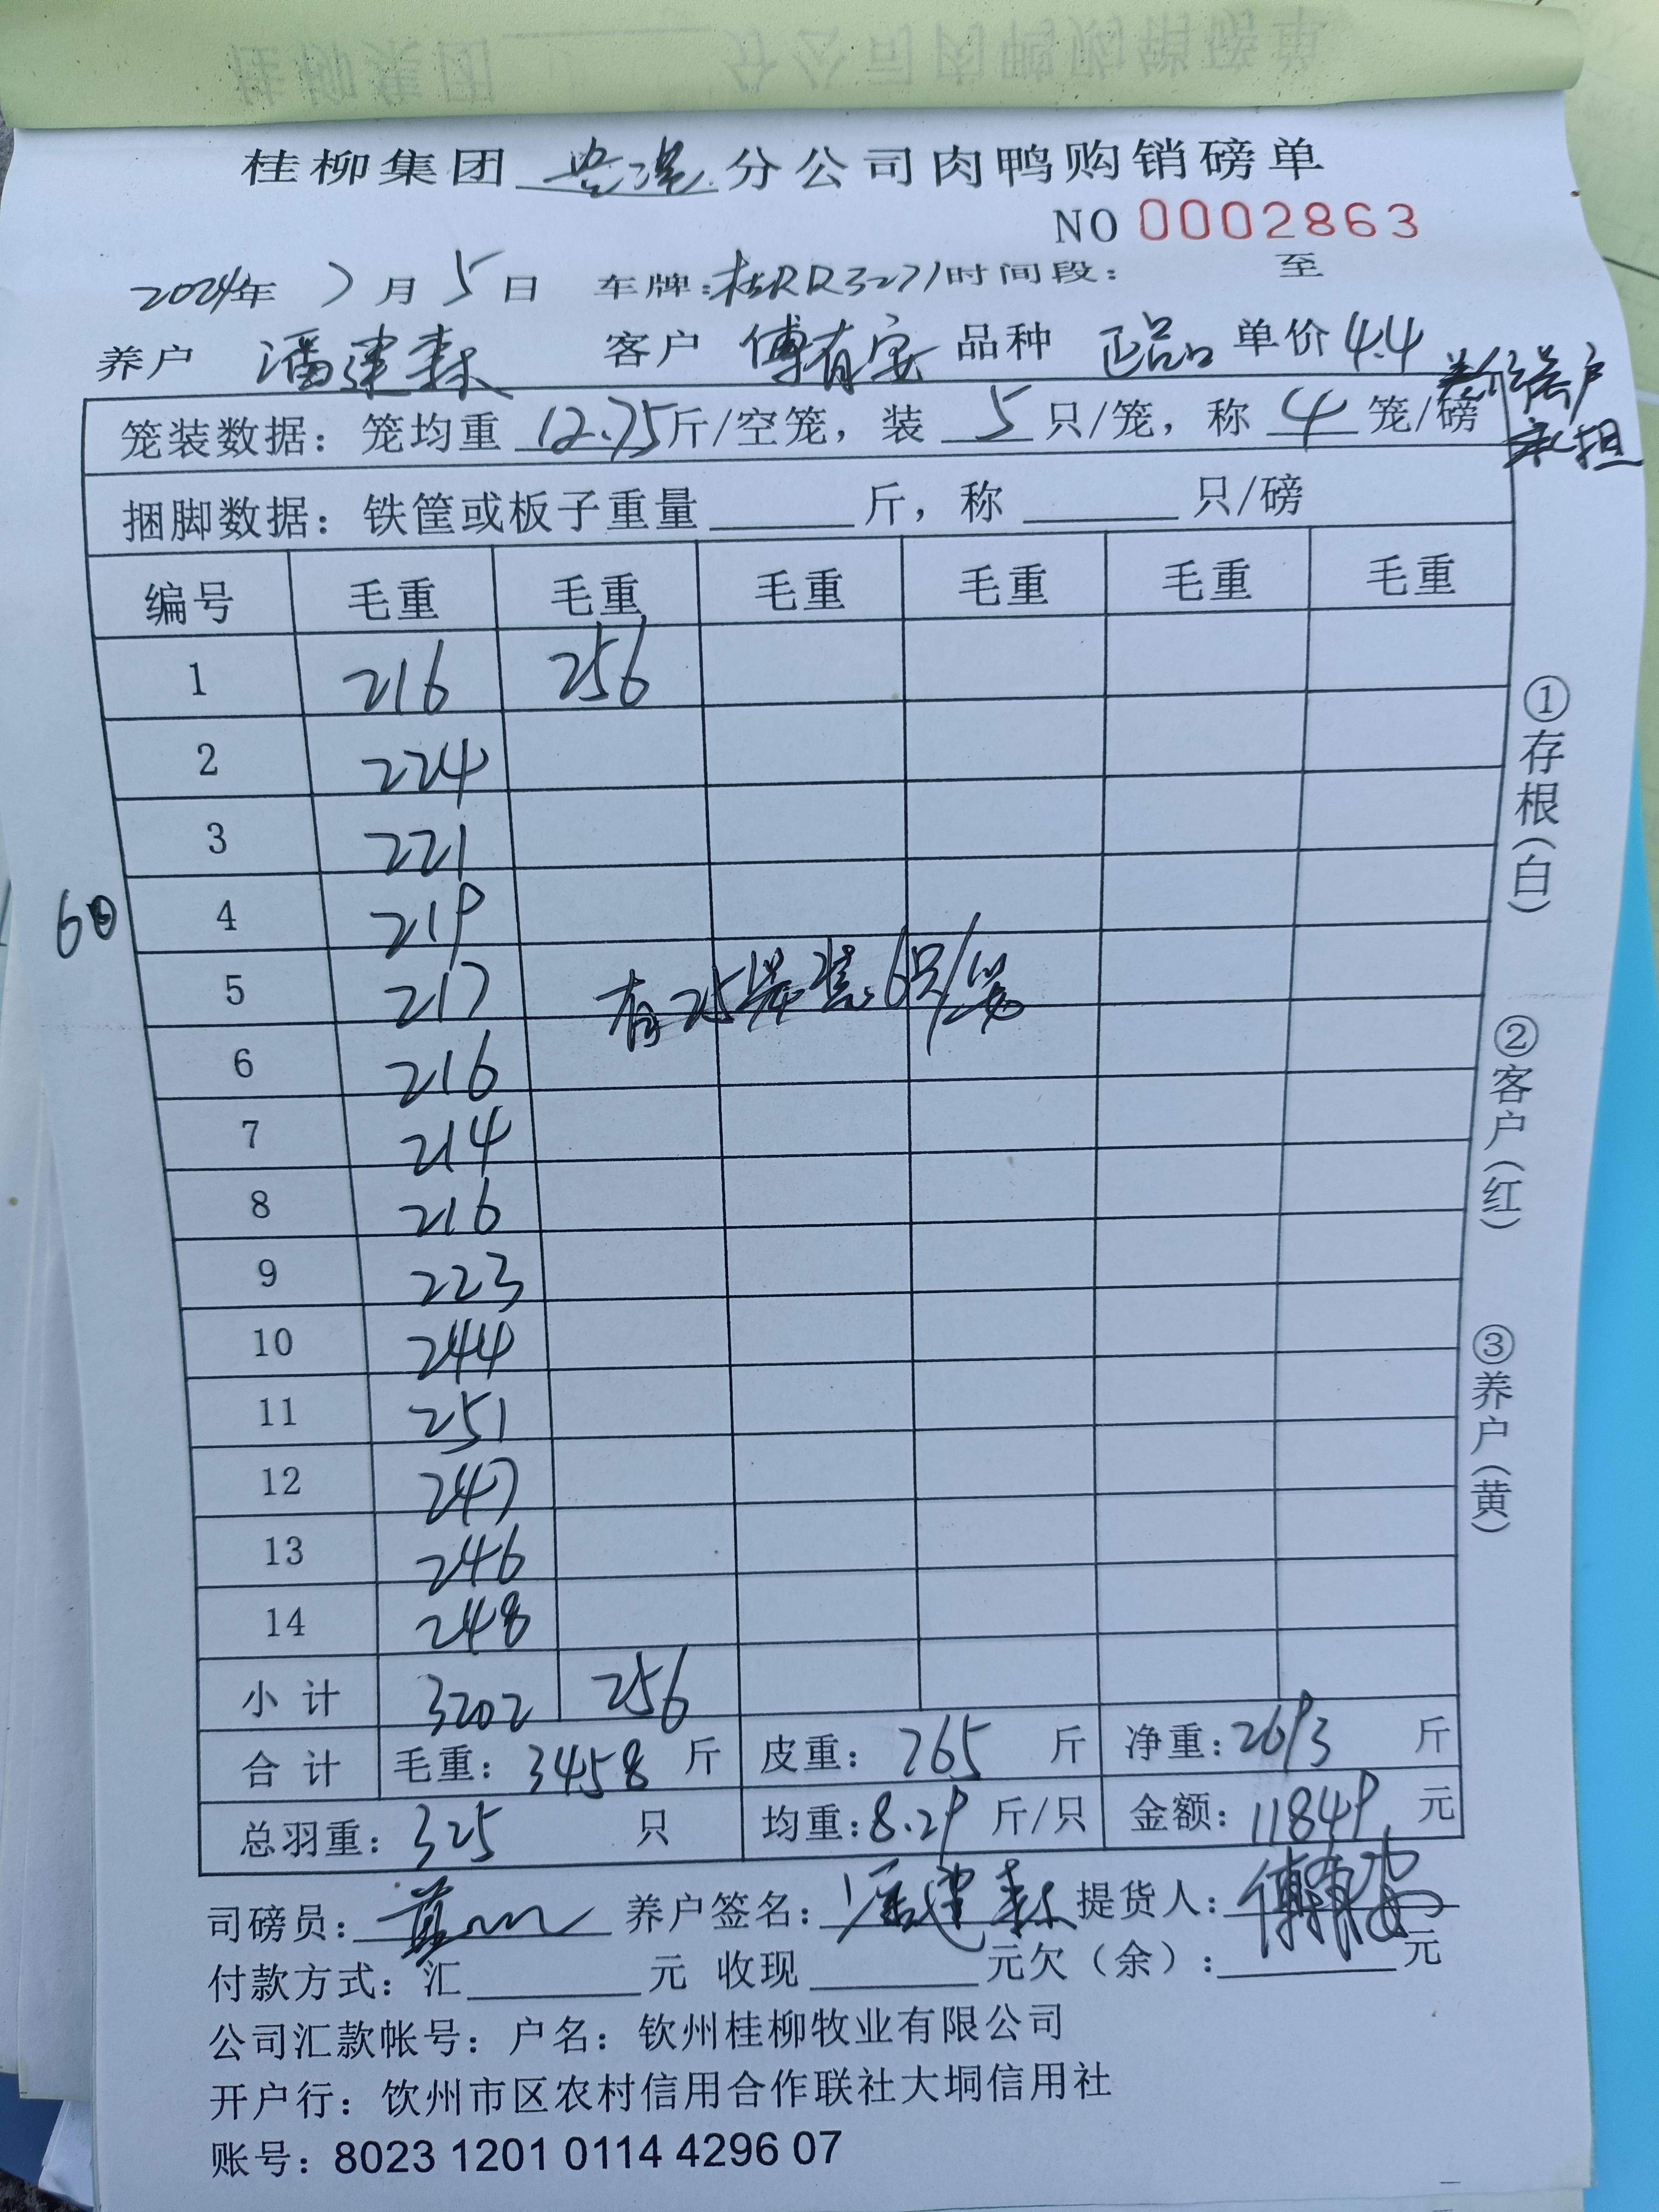 桂柳集团 分公司肉鸭购销磅单
NO 0002863
2024年 7月5日 车牌:桂RR3271 时间段: 至
养户 潘建森 客户 傅有安 品种 正品 单价 4.4
差价养户
承担
笼装数据:笼均重 12.75 斤/空笼,装 5 只/笼,称 4 笼/磅
捆脚数据:铁筐或板子重量 斤,称 只/磅
编号 毛重 毛重 毛重 毛重 毛重 毛重
1 216 256
2 224
3 221
60 4 219
5 217 有25笼装6只/笼
6 216
7 214
8 216
9 223
10 244
11 251
12 247
13 246
14 248
小计 3202 256
合计 毛重:3458斤 皮重:765斤 净重:2693斤
总羽重:325只 均重:8.29斤/只 金额:11849元
司磅员: 养户签名:潘建森 提货人:傅有安
付款方式:汇 元 收现 元欠(余): 元
公司汇款帐号:户名:钦州桂柳牧业有限公司
开户行:饮州市区农村信用合作联社大垌信用社
账号:8023 1201 0114 4296 07
①存根(白)
②客户(红)
③养户(黄)